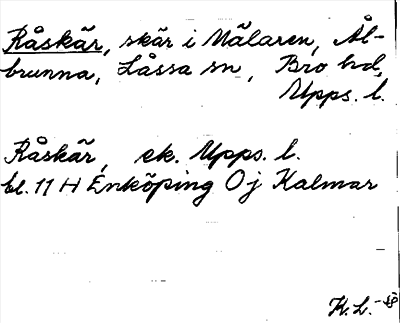 Råskär, skär i Mälaren, Ål-
brunna, Låssa sn, Bro hd,
Upps. l.
Råskär, ek. Upps. l.
bl. 11 H Enköping Oj Kalmar
K.L. -48